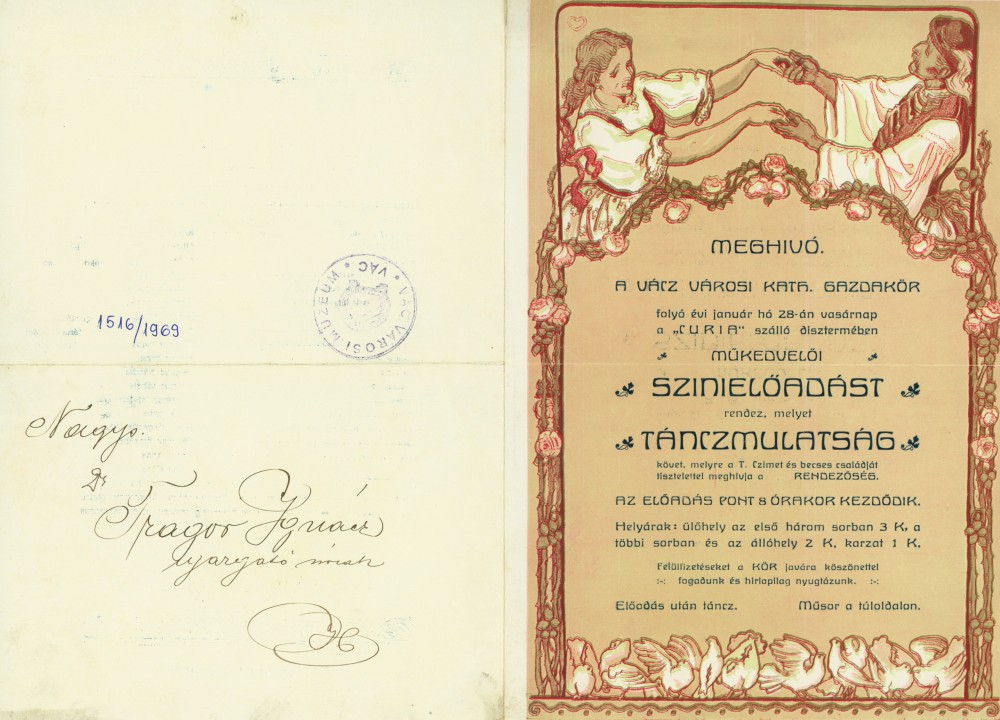 1516/1969
VÁCI VÁROSI MÚZEUM * VÁC *
Nagys.
Dr
Tragor Ignácz
igazgató úrnak
Hc
MEGHIVÓ.
A VÁCZ VÁROSI KATH. GAZDAKÖR
folyó évi január hó 28-án vasárnap
a „CURIA“ szálló disztermében
MŰKEDVELŐI
SZINIELŐADÁST
rendez, melyet
TÁNCZMULATSÁG
követ, melyre a T. Czimet és becses családját
tisztelettel meghivja a RENDEZŐSÉG.
AZ ELŐADÁS PONT 8 ÓRAKOR KEZDŐDIK.
Helyárak: ülőhely az első három sorban 3 K, a
többi sorban és az állóhely 2 K, karzat 1 K.
Felülfizetéseket a KÖR javára köszönettel
:-: fogadunk és hirlapilag nyugtázunk. :-:
Előadás után táncz. Műsor a túloldalon.